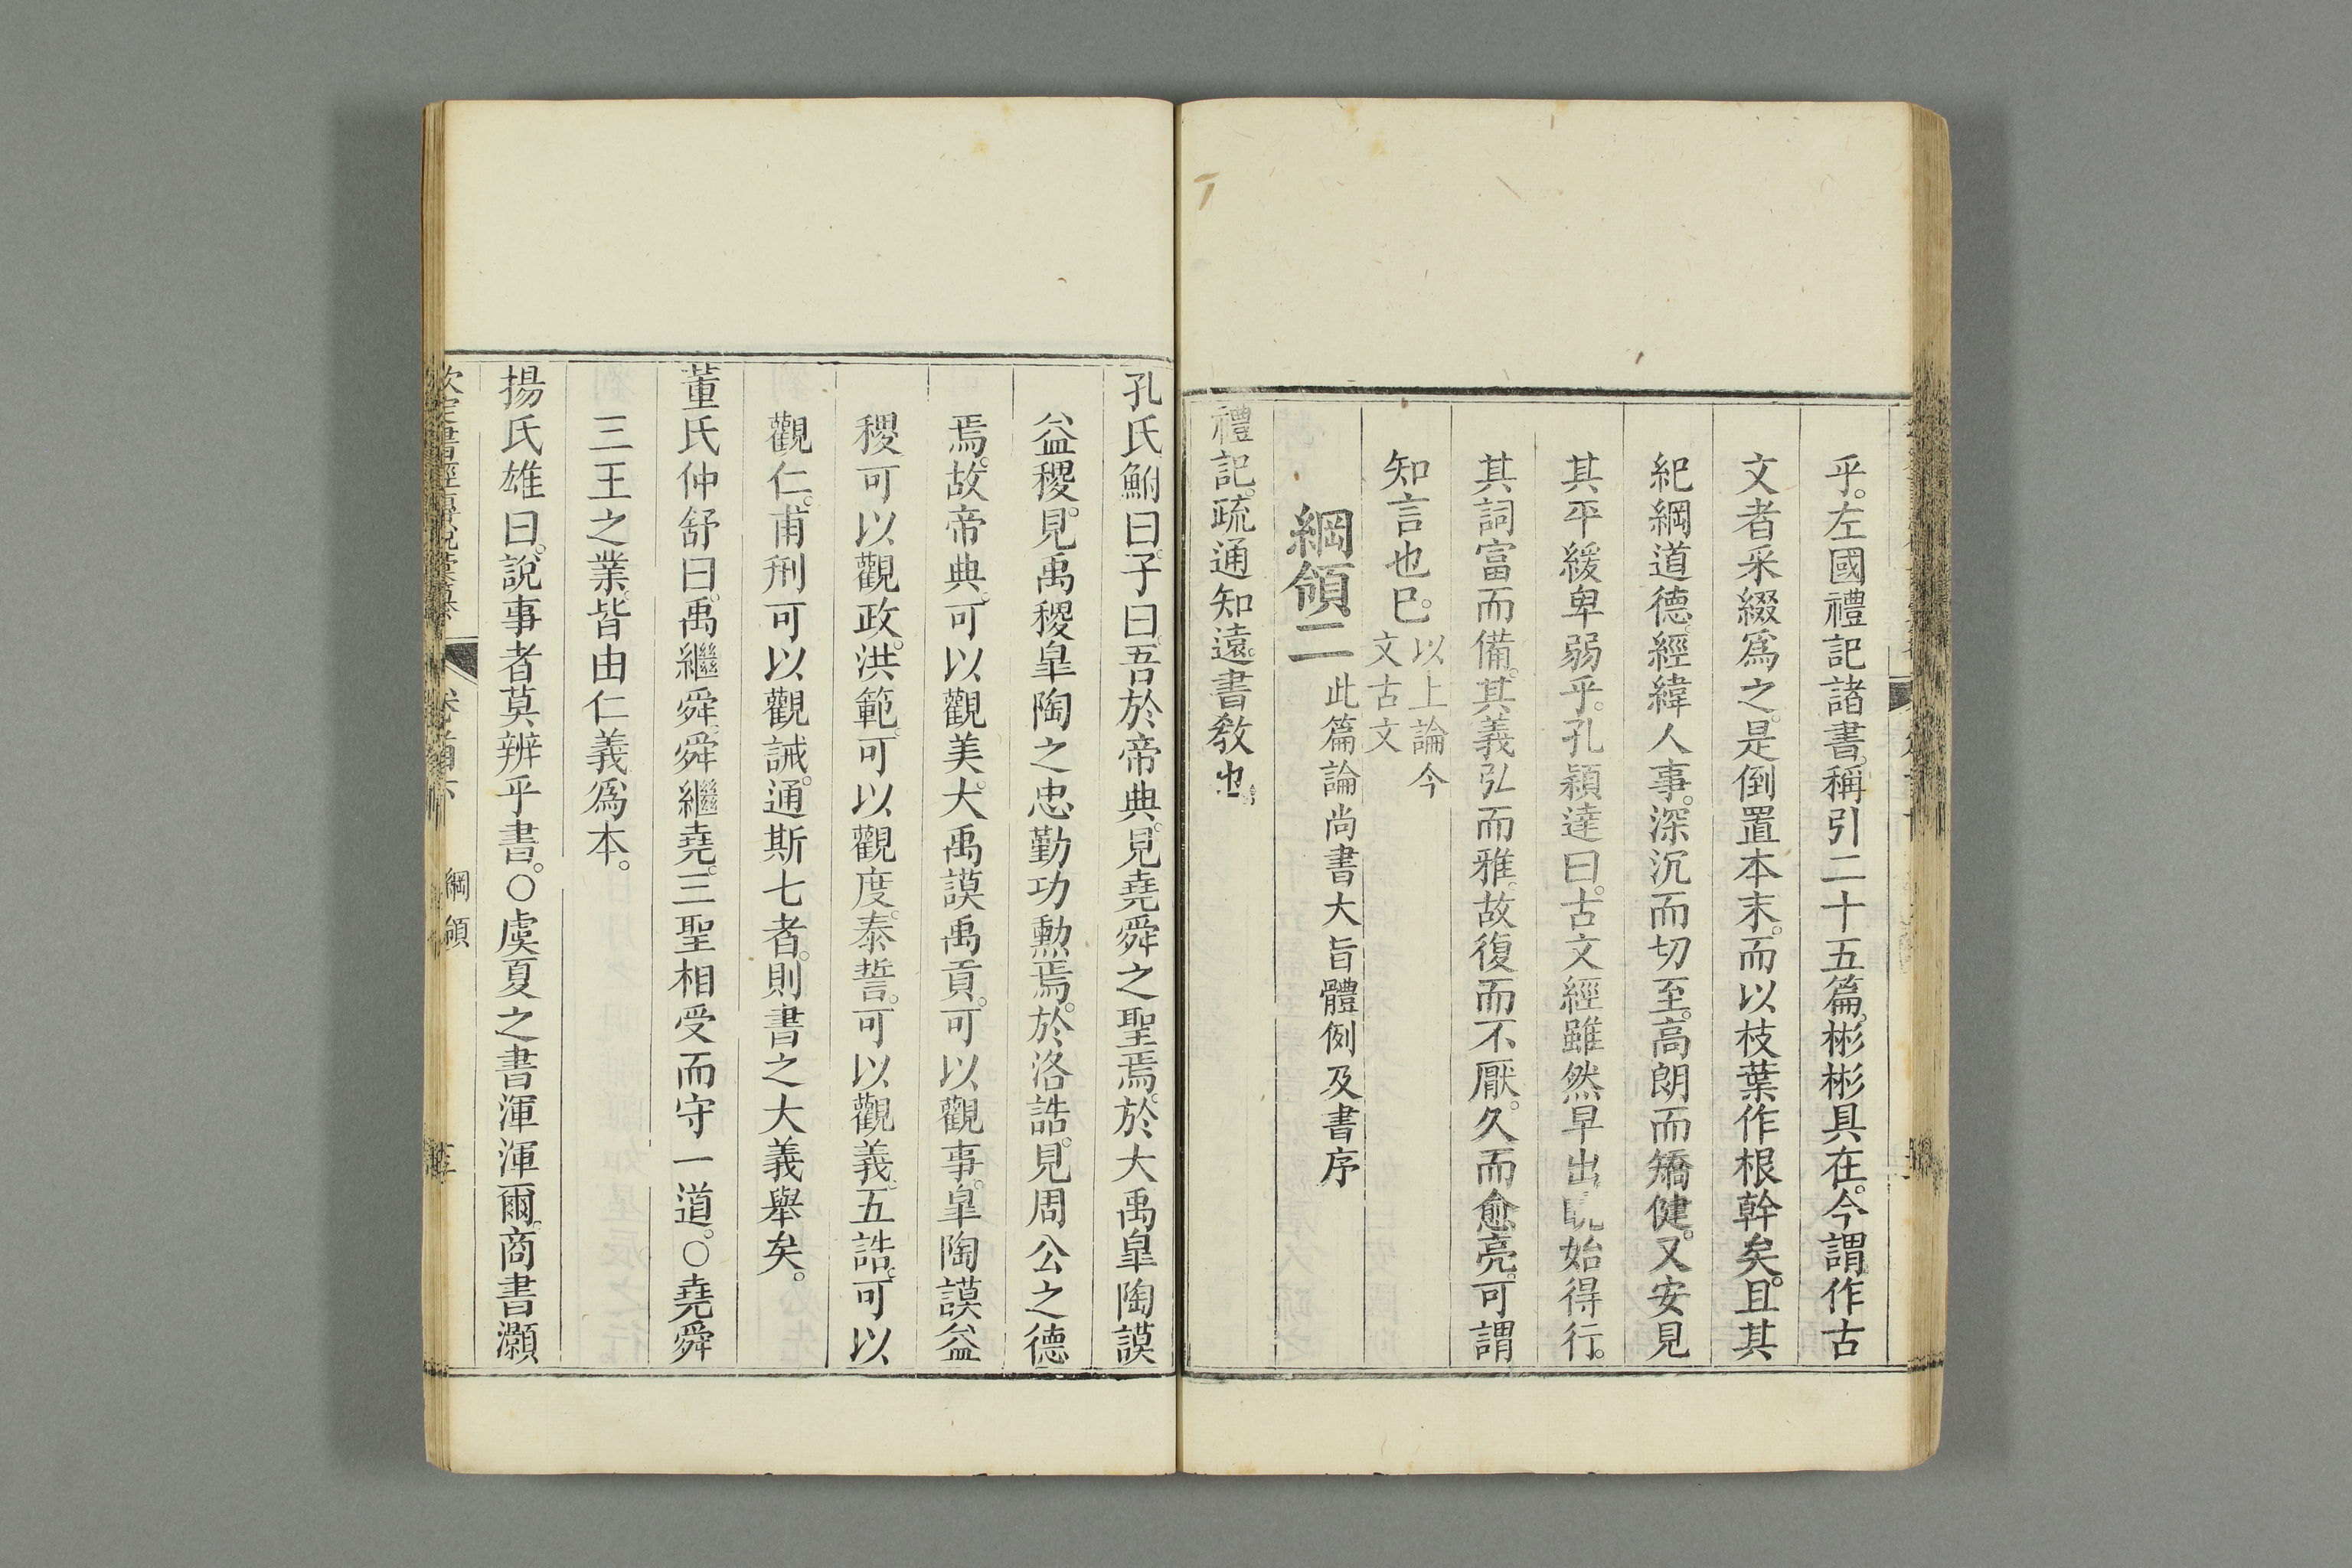 乎。左國禮記諸書。稱引二十五篇。彬彬具在。今謂作古
文者采綴爲之。是倒置本末。而以枝葉作根幹矣。且其
紀綱道德。經緯人事。深沉而切至。高朗而矯健。又安見
其平緩卑弱乎。孔穎達曰。古文經雖然早出。晚始得行。
其詞富而備。其義弘而雅。故復而不厭。久而愈亮。可謂
知言也巳。以上論今
文古文
綱領二 此篇論尚書大旨體例及書序
禮記。疏通知遠。書教也。
孔氏鮒曰。子曰。吾於帝典。見堯舜之聖焉。於大禹臯陶謨
益稷。見禹稷臯陶之忠勤功勳焉。於洛誥。見周公之德
焉。故帝典。可以觀美。大禹謨禹貢。可以觀事。臯陶謨益
稷可以觀政。洪範。可以觀度。泰誓。可以觀義。五誥。可以
觀仁。甫刑可以觀誡。通斯七者。則書之大義舉矣。
董氏仲舒曰。禹繼舜。舜繼堯。三聖相受而守一道。○堯舜
三王之業。皆由仁義爲本。
揚氏雄曰。說事者莫辨乎書。○虞夏之書渾渾爾。商書灝
欽定書經傳說彙纂 卷首下 綱領